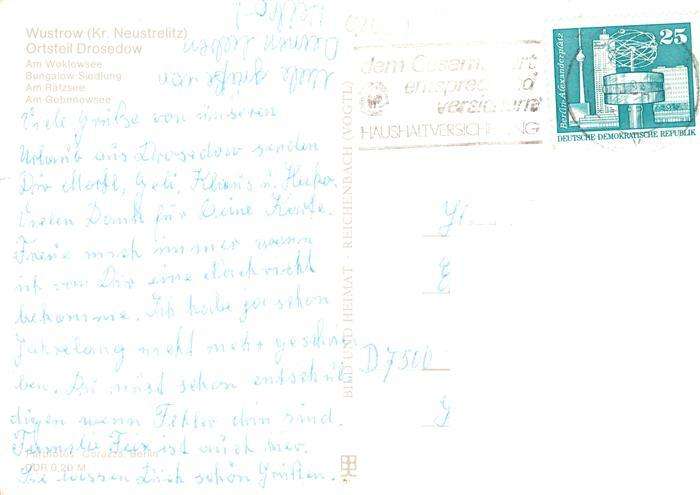 Wustrow (Kr. Neustrelitz)
Ortsteil Drosedow
Am Woklowsee
Bungalow Siedlung
Am Rätzsee
Am Gobenowsee
Viele Grüße von unseren
Urlaub aus Drosedow senden
Dir Klaus u.
Vielen Dank für Deine Karte.
Freue mich immer wenn
ich von Dir eine Nachricht
bekomme. Ich habe ja schon
Jahrelang nicht mehr geschrie
ben. Du müst schon entschul
digen wenn Fehler drin sind.
Familie ist auch hier.
Sie lassen Dich schön Grüßen.
Viele Grüße von
Deinen lieben
Berlin
DDR 0,20 M
BILD UND HEIMAT · REICHENBACH (VOGTL)
dem Gesamtwert
entsprechend
versichern
HAUSHALTVERSICHERUNG
Berlin-Alexanderplatz
25
DEUTSCHE DEMOKRATISCHE REPUBLIK
D 7500